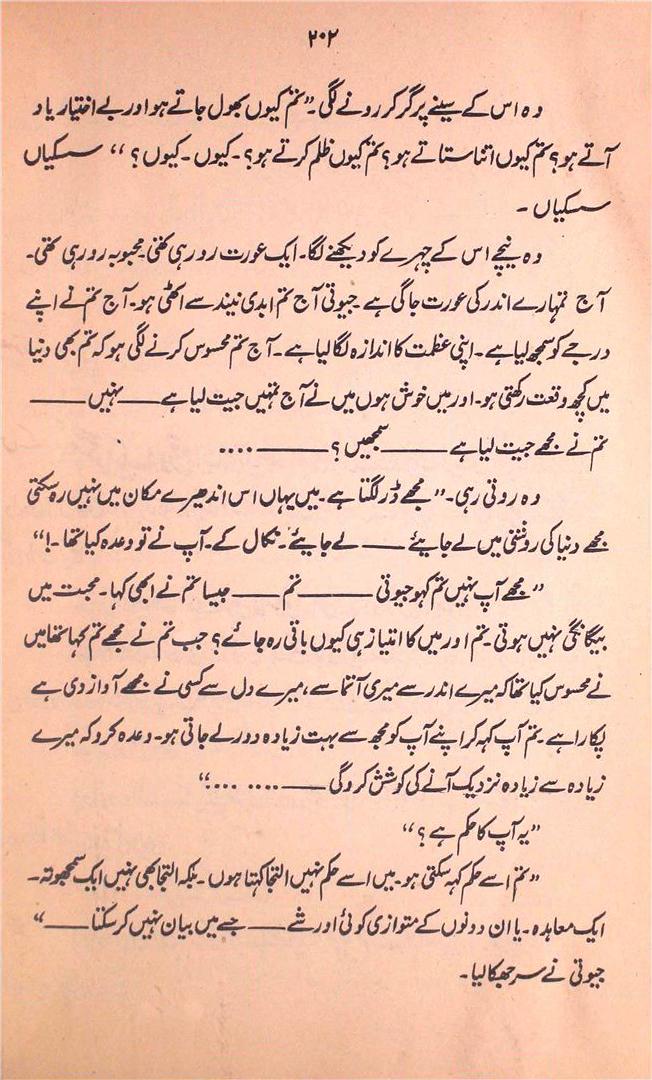 ۲۰۲
وہ اس کے سینے پر گر کر رونے لگی۔ ”تم کیوں بھول جاتے ہو اور بے اختیار یاد
آتے ہو؟ تم کیوں اتنا ستاتے ہو؟ تم کیوں ظلم کرتے ہو؟۔ کیوں۔ کیوں؟“ سسکیاں
سسکیاں ۔
وہ نیچے اس کے چہرے کو دیکھنے لگا۔ ایک عورت رو رہی تھی۔ محبوبہ رو رہی تھی۔
آج تمہارے اندر کی عورت جاگی ہے۔ جیوتی آج تم ابدی نیند سے اٹھی ہو۔ آج تم نے اپنے
درجے کو سمجھ لیا ہے۔ اپنی عظمت کا اندازہ لگا لیا ہے۔ آج تم محسوس کرنے لگی ہو کہ تم بھی دنیا
میں کچھ وقعت رکھتی ہو۔ اور میں خوش ہوں میں نے آج تمہیں جیت لیا ہے —— نہیں ——
تم نے مجھے جیت لیا ہے —— سمجھیں؟ —— ....
وہ روتی رہی۔ ”مجھے ڈر لگتا ہے۔ میں یہاں اس اندھیرے مکان میں نہیں رہ سکتی
مجھے دنیا کی روشنی میں لے جایئے —— لے جایئے۔ نکال کے۔ آپ نے تو وعدہ کیا تھا۔!“
”مجھے آپ نہیں تم کہو جیوتی —— تم —— جیسا تم نے ابھی کہا۔ محبت میں
بیگانگی نہیں ہوتی۔ تم اور میں کا امتیاز ہی کیوں باقی رہ جائے؟ جب تم نے مجھے تم کہا تھا میں
نے محسوس کیا تھا کہ میرے اندر سے میری آتما سے، میرے دل سے کسی نے مجھے آواز دی ہے
پکارا ہے۔ تم آپ کہہ کر اپنے آپ کو مجھ سے بہت زیادہ دور لے جاتی ہو۔ وعدہ کرو کہ میرے
زیادہ سے زیادہ نزدیک آنے کی کوشش کرو گی —— .... ....“
”یہ آپ کا حکم ہے؟“
”تم اسے حکم کہہ سکتی ہو۔ میں اسے حکم نہیں التجا کہتا ہوں۔ بلکہ التجا بھی نہیں ایک سمجھوتہ۔
ایک معاہدہ۔ یا ان دونوں کے متوازی کوئی اور شے —— جسے میں بیان نہیں کر سکتا ——“
جیوتی نے سر جھکا لیا۔